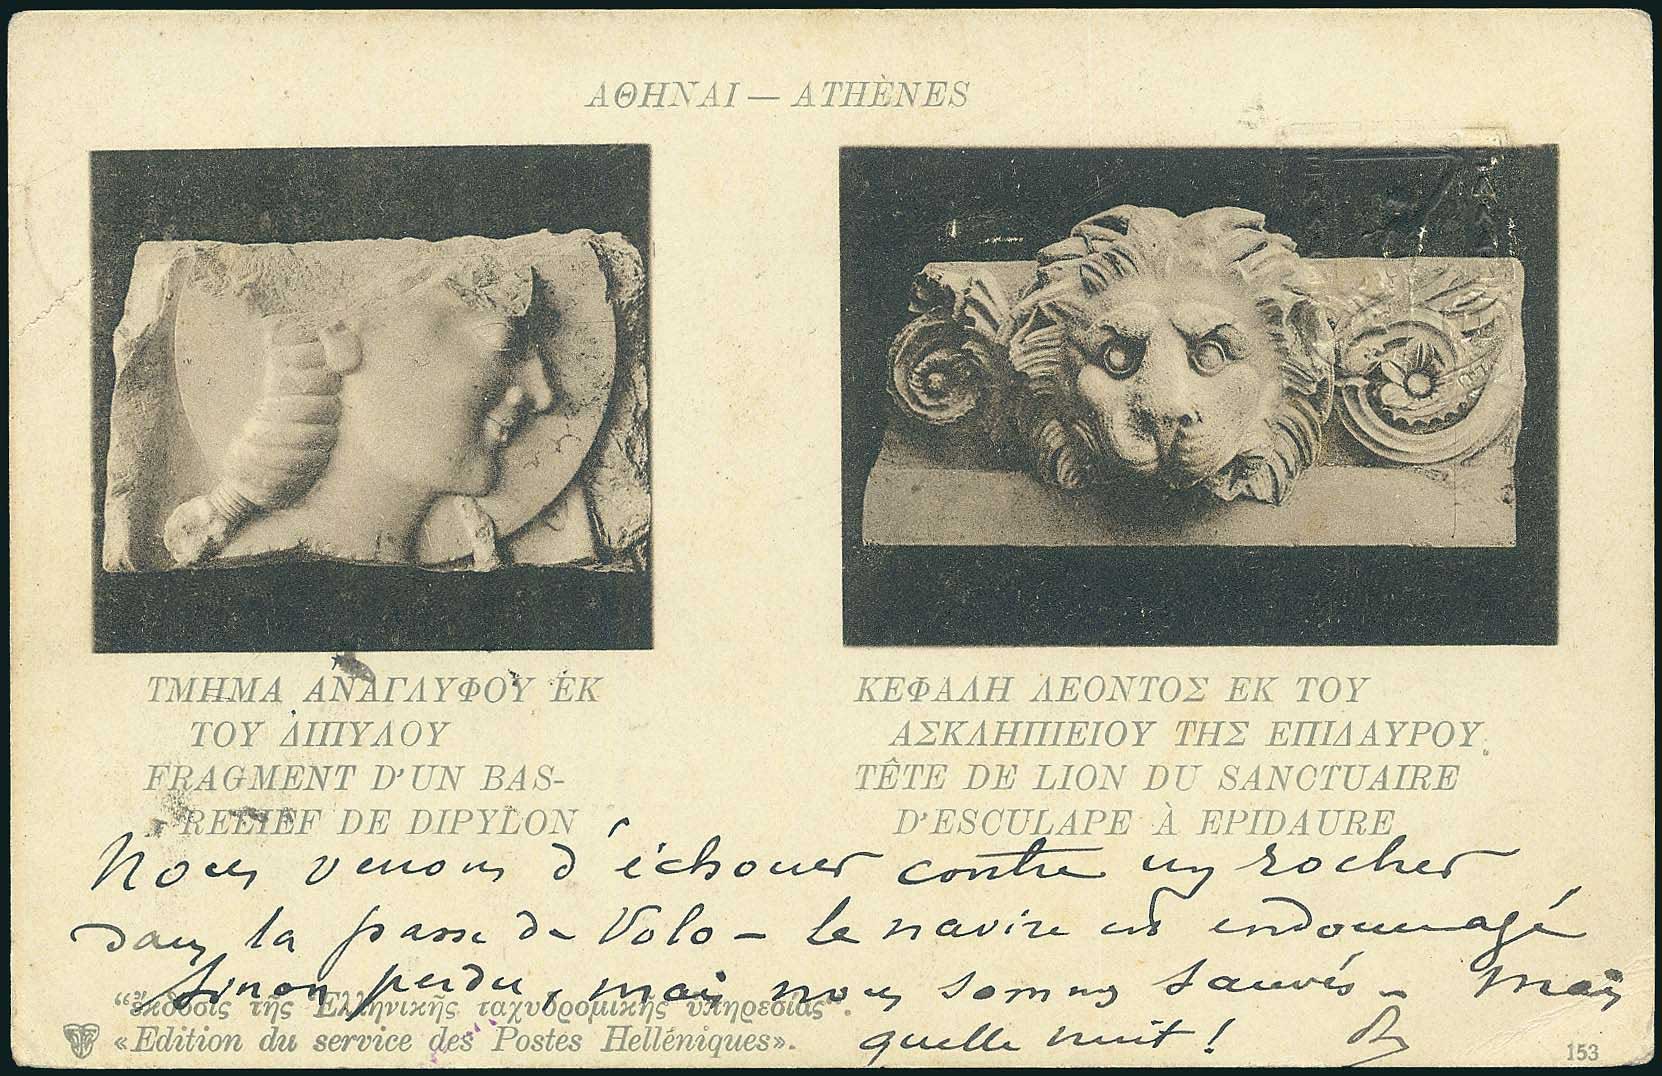 ΑΘΗΝΑΙ — ATHÈNES
ΤΜΗΜΑ ΑΝΑΓΛΥΦΟΥ ΕΚ
ΤΟΥ ΔΙΠΥΛΟΥ
FRAGMENT D'UN BAS-
RELIEF DE DIPYLON
ΚΕΦΑΛΗ ΛΕΟΝΤΟΣ ΕΚ ΤΟΥ
ΑΣΚΛΗΠΙΕΙΟΥ ΤΗΣ ΕΠΙΔΑΥΡΟΥ
TÊTE DE LION DU SANCTUAIRE
D'ESCULAPE À EPIDAURE
Nous venons d'échouer contre un rocher
dans la passe de Volo – le navire est endommagé
sinon perdu, mais nous sommes sauvés – Mais
quelle nuit !
“ἔκδοσις τῆς Ἑλληνικῆς ταχυδρομικῆς ὑπηρεσίας”.
«Edition du service des Postes Helléniques».
153